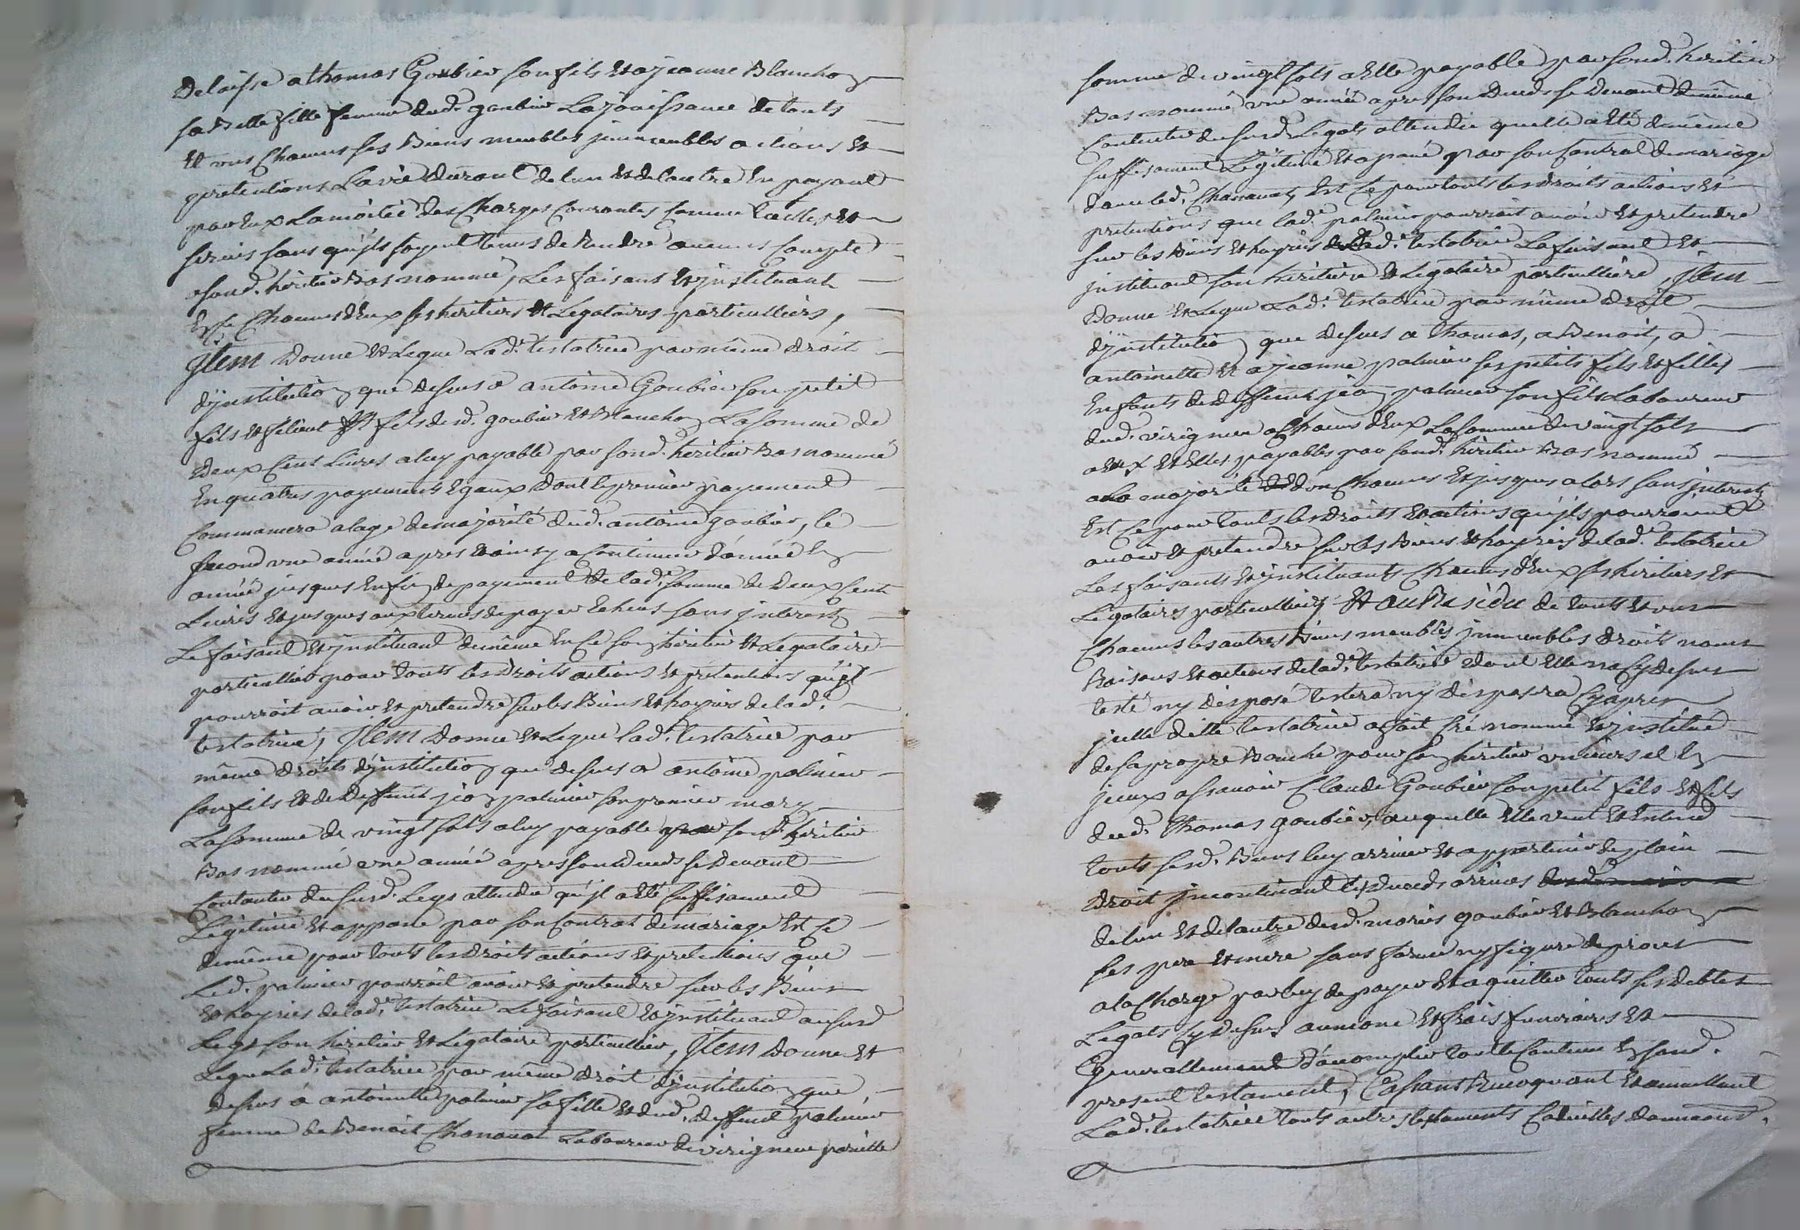 delaisse a thomas Goubier son fils et a jeanne Blanchon
sa belle fille femme dud. goubier La jouissance de touts
et uns Chacuns ses Biens meubles jmmeubles actions et
pretentions La vie durant de l'un et de l'autre En payant
par Eux La moitié des Charges Courantes Comme tailles et
servis sans qu'jls soyent tenus de Rendre aucuns Compte
a sond. héritier Bas nommé, Les faisant et jnstituant
En ce Chacuns d'Eux ses héritiers et Legataires particulliers,
Jtem Donne et Legue Lad. testatrice par même droit
d'jnstitution que dessus a antoine Goubier son petit
fils et filieul fils desd. goubier et Blanchon La somme de
deux Cent Livres a luy payable par sond. heritier Bas nommé
En quatres payements Egaux dont le premier payement
Commancera a l'age de majorité dud. antoine goubier, le
second une année apres et ainsy a Continuer d'année En
année jusques En fin de payement de lad. somme de deux Cent
Livres et jusques aux termes de payer Echeus sans jnterest
Le faisant et jnstituant de même En Ce son héritier et Legataire
particullier pour touts les droits actions et pretentions qu'jl
pourroit avoir et pretendre sur les Biens et hoyries de lad.
testatrice, Jtem Donne et Legue lad. testatrice par
même droits d'jnstitution que dessus a antoine palmier
son fils et de deffunt jean palmier son premier mary
La somme de vingt sols a luy payable par sond. héritier
Bas nommé une année apres son deceds se devant
Contanter dusurd. Legs attendu qu'jl a Eté suffisament
Legitimé et appané par son Contrat de mariage Et Ce
de même pour touts les droits actions et pretentions que
Led. palmier pourroit avoir et pretendre sur les Biens
et hoyries de lad. testatrice Le faisant et jnstituant au surd
Legs son héritier et Legataire particullier, Jtem Donne et
Legue Lad. testatrice par même droit d'jnstitution que
dessus a antoinette palmier sa fille et dud. deffunt palmier
femme de Benoit Chanavat Laboureur de virigneu pareille
somme de vingt sols a Elle payable par sond. héritier
Bas nommé une année apres son deceds se devant de même
Contenter dusurd. Legats attendu quelle a Eté de même
suffisament Legitimé et apané par son Contrat de mariage
dans led. Chanavat, Et Ce pour touts les droits actions et
pretentions que lad. palmier pourroit avoir et pretendre
sur les Biens et hoyries de Lad. testatrice La faisant et
jnstituant son héritière et Legataire particullière, Jtem
Donne et Legue Lad. testatrice par même droit
d'jnstitution que dessus a Thomas, a Benoit, a
antoinette et a jeanne palmier ses petits fils et filles
Enfants de deffunt jean palmier son fils Laboureur
dud. virigneu a Chacuns d'Eux La somme de vingt sols
a Eux et Elles payables par sond. héritier Bas nommé
a La majorité d'un Chacuns et jusques alors sans jnterest
Est Ce pour touts les droits et actions qu'jls pourroient
avoir et pretendre sur les Biens et hoyries de lad. testatrice
Les faisants et jnstituants Chacuns d'Eux ses héritiers et
Legataires particulliers Et au Résidu de touts et uns
Chacuns les autres Biens meubles jmmeubles droits noms
Raisons et actions de lad. testatrice dont Elle n'a Cy dessus
testé ny disposé testera ny disposera Cy apres
jcelle ditte testatrice a fait Créé nommé et jnstitué
de sa propre Bouche pour son héritier universel En
jceux a scavoir Claude Goubier son petit fils et fils
dud. Thomas goubier, auquelle Elle veut et Entend
touts sesd. Biens luy arriver et appartenir de plain
droit jncontinant les deceds arrivés
de l'un et de l'autre desd. mariés goubier et Blanchon
ses pere et mere sans forme ny figure de procès
a la Charge par luy de payer et aquitter touts ses debtes
Legats Cy dessus aumone et frais funeraires et
Generallement d'accomplir tout le Contenu En sond.
present testament, Cassant Revoquant et annullant
Lad. testatrice touts autres testaments Codicilles donnaons